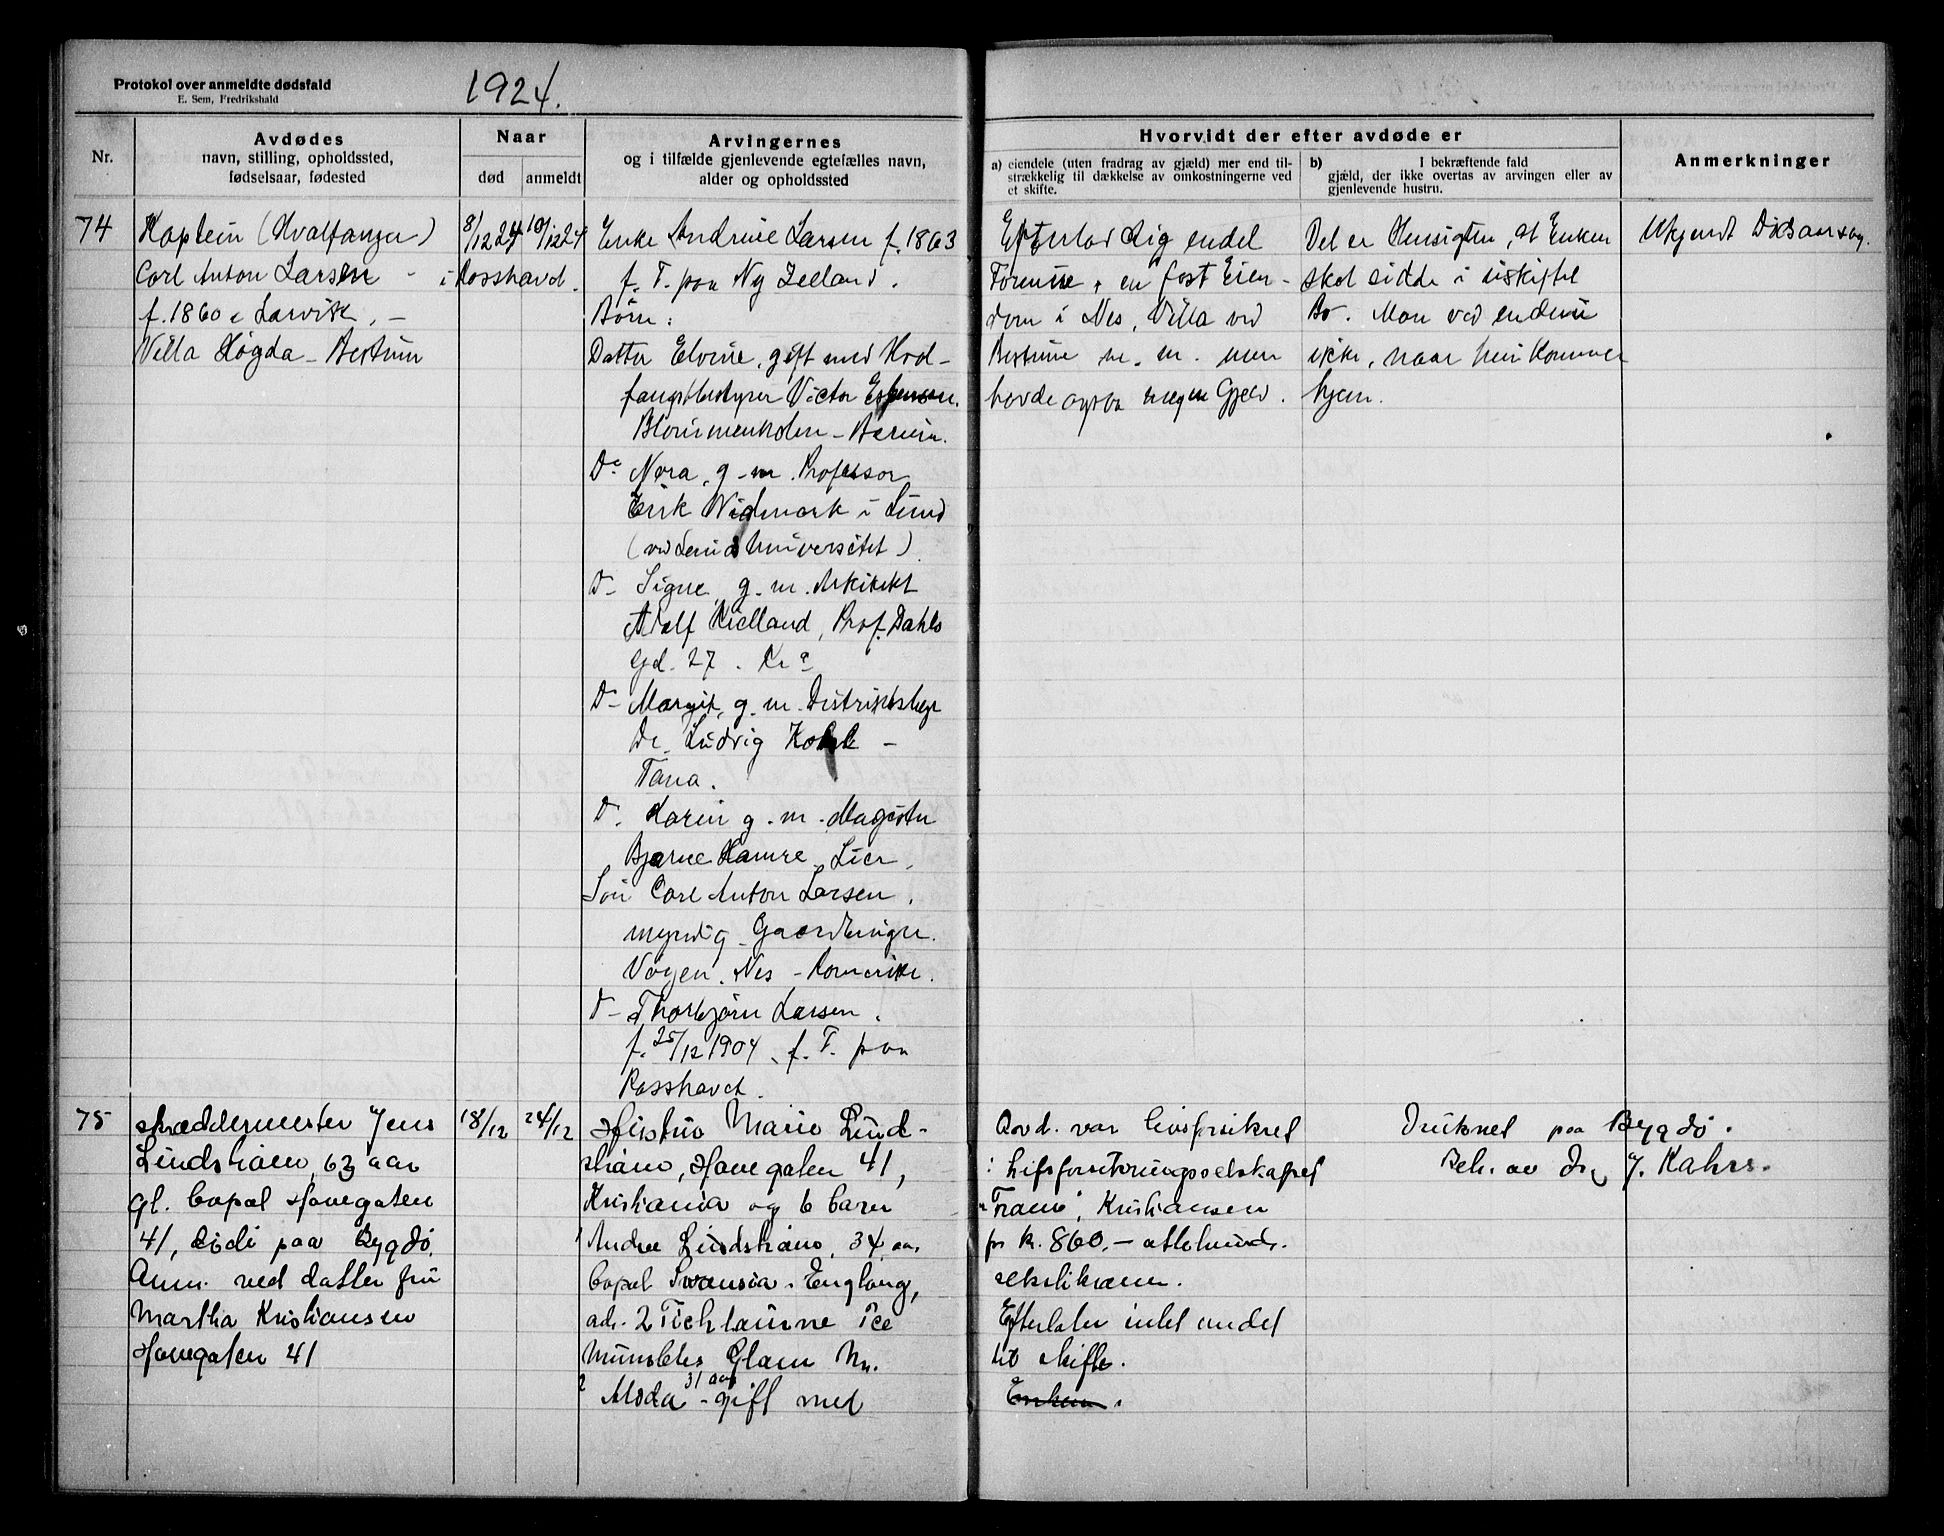 Protokol over anmeldte dødsfald
E. Sem, Fredrikshald
1924.
Nr.
Avdødes
navn, stilling, opholdssted,
fødselsaar, fødested
Naar
død
anmeldt
Arvingernes
og i tilfælde gjenlevende egtefælles navn,
alder og opholdssted
Hvorvidt der efter avdøde er
a) eiendele (uten fradrag av gjæld) mer end til-
strækkelig til dækkelse av omkostningerne ved
et skifte.
b) I bekræftende fald
gjæld, der ikke overtas av arvingen eller av
gjenlevende hustru.
Anmerkninger
74
Kaptein (Hvalfanger)
Carl Anton Larsen -
f. 1860 i Larvik, -
Villa Høgda - Bestum
8/12 24
i Rosshavet.
10/12 24
Enke Andrine Larsen f. 1863
f. T. paa Ny Zeeland.
Børn:
Datter Elvine, gift med Hval-
fangstbestyrer Victor Esbensen.
Blommenholm - Bærum.
Do Nora, g. m. Professor
Erik Widmark i Lund
(ved Lunds Universitet)
D- Signe, g. m. Arkitekt
Adolf Kielland, Prof. Dahls
Gd. 27. Kr a
D- Margit, g. m. Distriktslæge
Dr. Ludvig
Tana.
D. Karin g. m. Magister
Bjarne Hamre, Lier.
Søn Carl Anton Larsen,
myndig - Gaardbruger.
Vogen, Nes - Romerike.
D- Thorbjørn Larsen.
f. 25/12 1904, f. T. paa
Rosshavet.
Efterlod sig endel
Formue, en fast Eien-
dom i Nes, Villa ved
Bestum m. m. men
havde ogsaa megen Gjeld.
Det er Hensigten, at Enken
skal sidde i uskiftet
Bo. Man ved endnu
ikke, naar hun kommer
hjem.
Ukjendt Dødsaarsag.
75
Skræddermester Jens
Lindstrøm, 63 aar
gl. bopæl Havegaten
41, døde paa Bygdø.
Anm. ved datter fru
Martha Kristiansen
Havegaten 41
18/12
24/12
Hustru Marie Lind-
strøm, Havegaten 41,
Kristiania og 6 barn
1 Andree Lindstrøm, 34 aar
bopæl Swansea, England,
adr. 2
Glam
2 Alvida 31 aar - gift med
Avd. var livsforsikret
i Livsforsikringsselskapet
"Fram", Kristiansen
for kr. 860,- ottehundr.
sekstikroner.
Efterlater intet andet
til skifte.
Enken.
Druknet paa Bygdø.
Beh. av Dr. J. Kahrs.